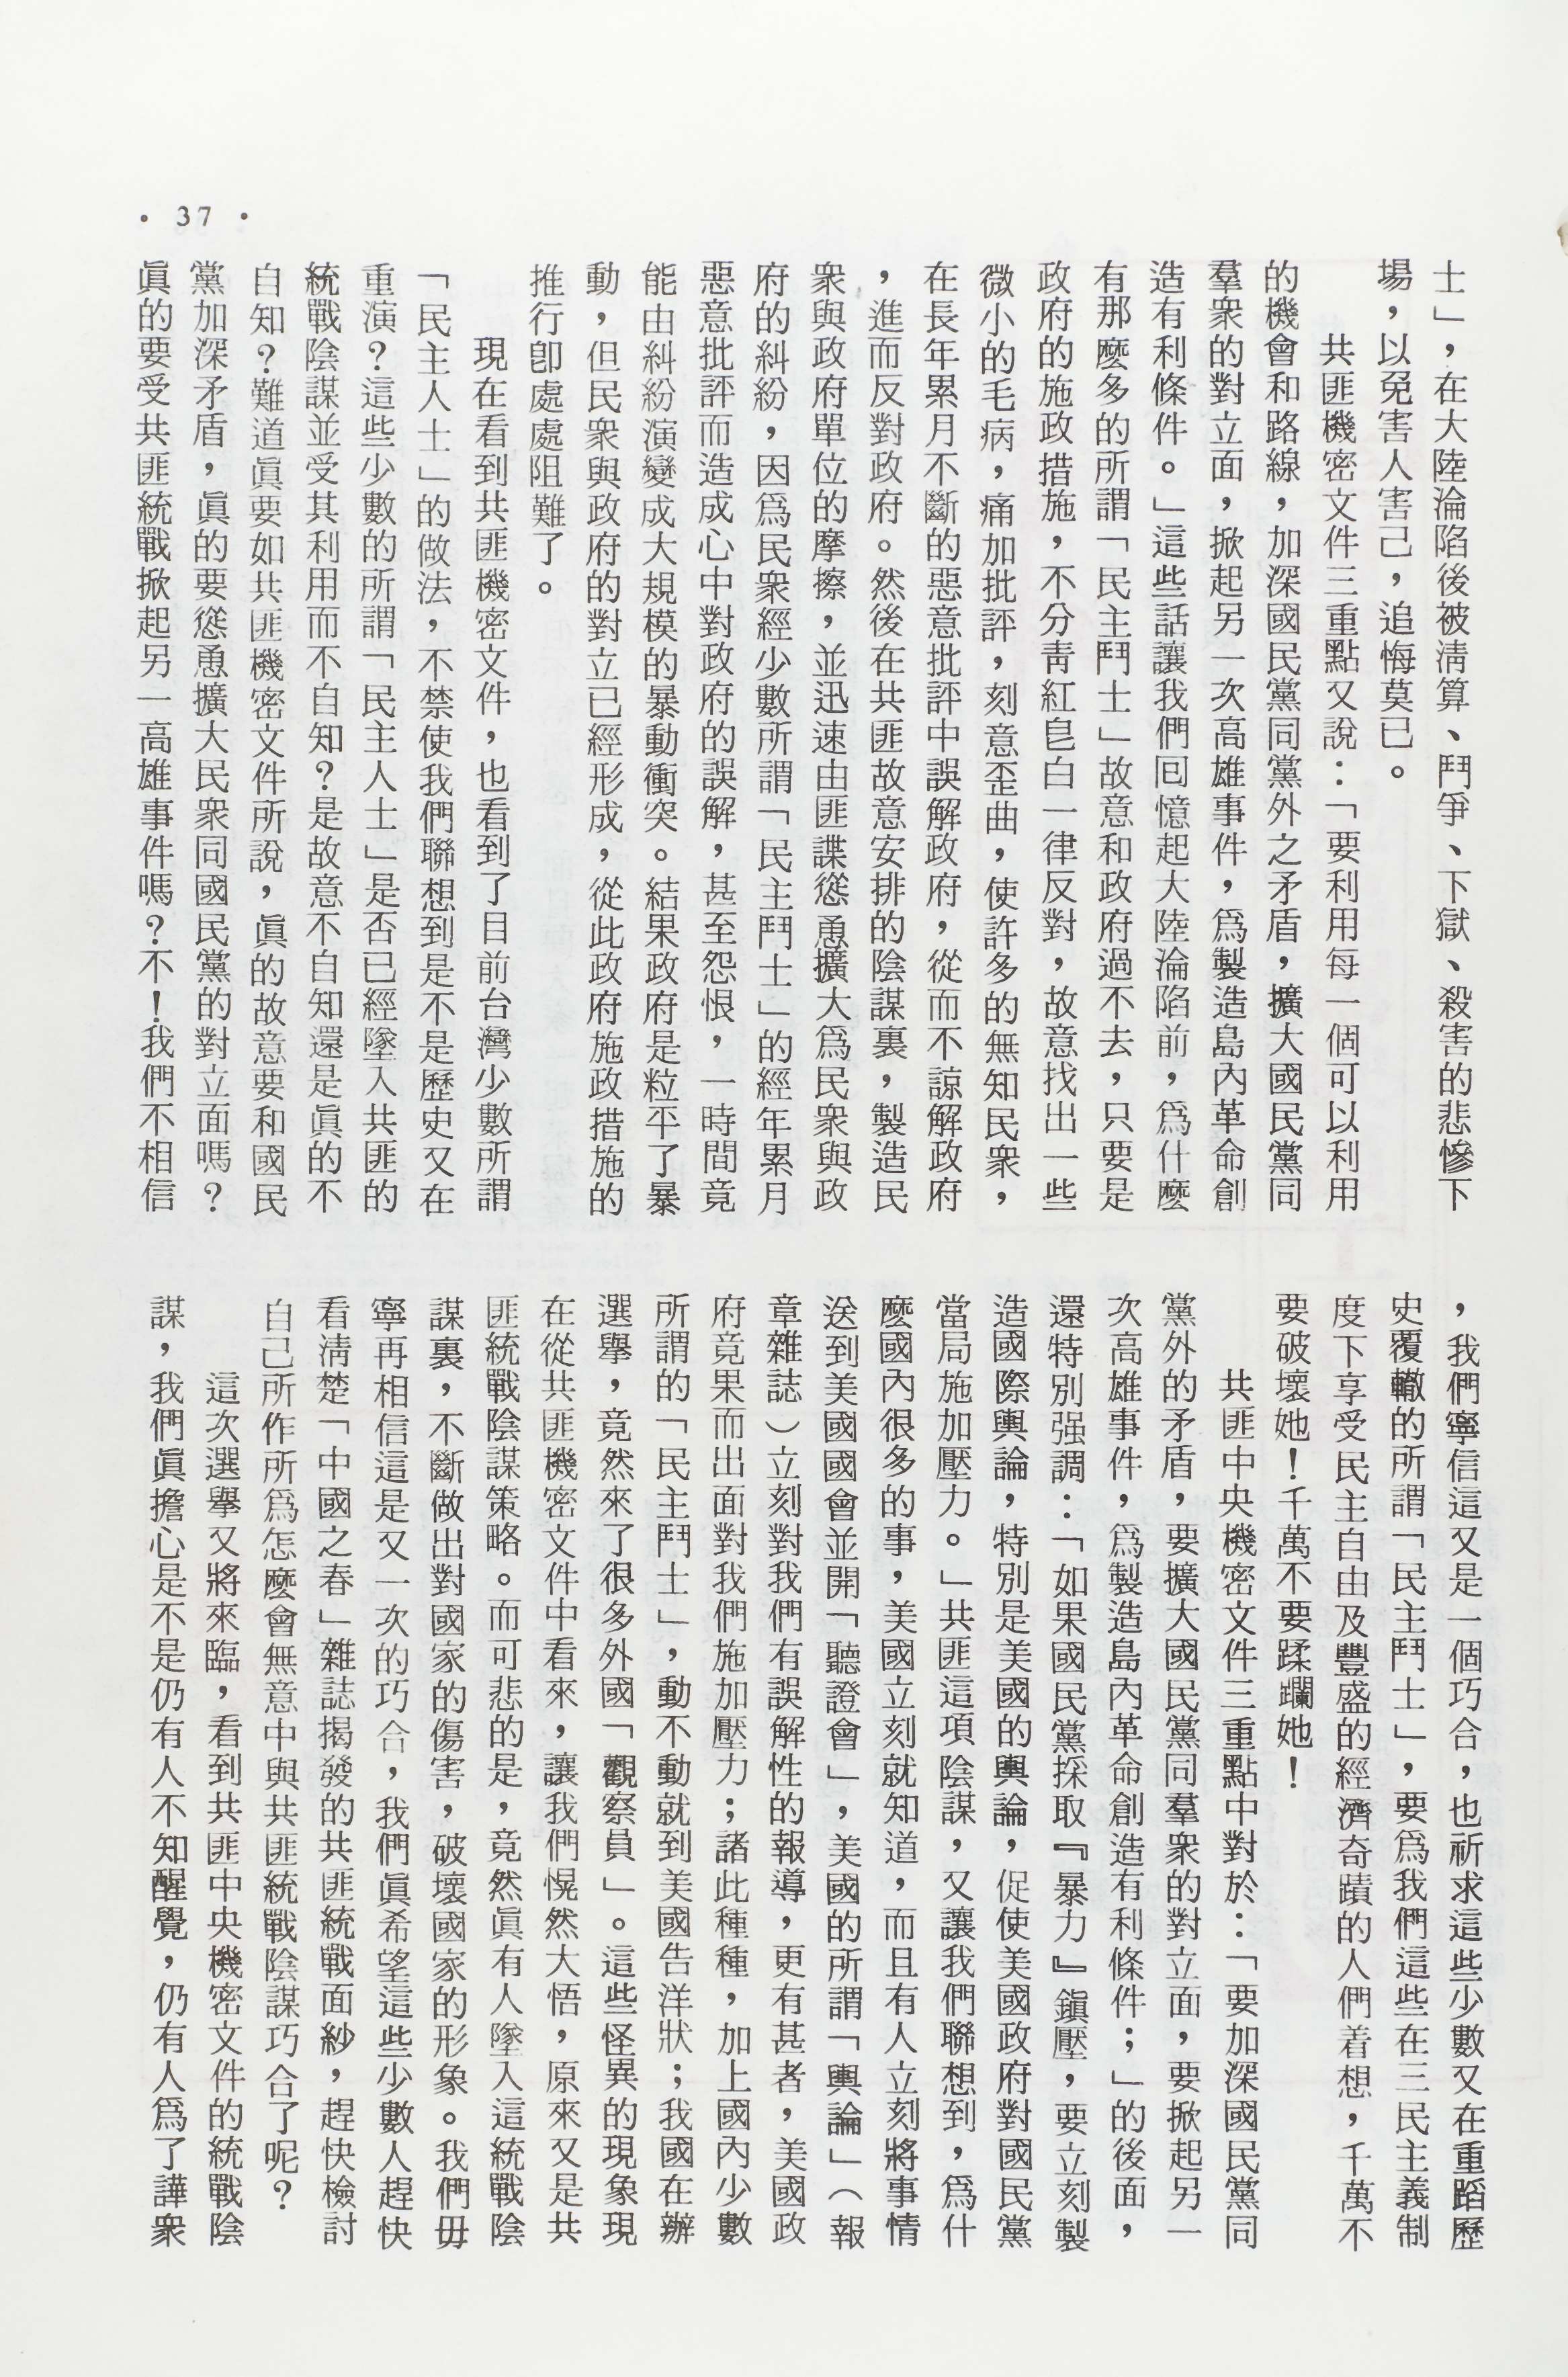 士」，在大陸淪陷後被淸算、鬥爭、下獄、殺害的悲慘下
場，以免害人害己，追悔莫已。
共匪機密文件三重點又說：「要利用每一個可以利用
的機會和路線，加深國民黨同黨外之矛盾，擴大國民黨同
羣衆的對立面，掀起另一次高雄事件，爲製造島內革命創
造有利條件。」這些話讓我們囘憶起大陸淪陷前，爲什麼
有那麼多的所謂「民主鬥士」故意和政府過不去，只要是
政府的施政措施，不分靑紅皂白一律反對，故意找出一些
微小的毛病，痛加批評，刻意歪曲，使許多的無知民衆，
在長年累月不斷的惡意批評中誤解政府，從而不諒解政府
，進而反對政府。然後在共匪故意安排的陰謀裏，製造民
衆與政府單位的摩擦，並迅速由匪諜慫恿擴大爲民衆與政
府的糾紛，因爲民衆經少數所謂「民主鬥士」的經年累月
惡意批評而造成心中對政府的誤解，甚至怨恨，一時間竟
能由糾紛演變成大規模的暴動衝突。結果政府是粒平了暴
動，但民衆與政府的對立已經形成，從此政府施政措施的
推行卽處處阻難了。
現在看到共匪機密文件，也看到了目前台灣少數所謂
「民主人士」的做法，不禁使我們聯想到是不是歷史又在
重演？這些少數的所謂「民主人士」是否已經墜入共匪的
統戰陰謀並受其利用而不自知？是故意不自知還是眞的不
自知？難道眞要如共匪機密文件所說，眞的故意要和國民
黨加深矛盾，眞的要慫恿擴大民衆同國民黨的對立面嗎？
眞的要受共匪統戰掀起另一高雄事件嗎？不！我們不相信
，我們寧信這又是一個巧合，也祈求這些少數又在重蹈歷
史覆轍的所謂「民主鬥士」，要爲我們這些在三民主義制
度下享受民主自由及豐盛的經濟奇蹟的人們着想，千萬不
要破壞她！千萬不要蹂躪她！
共匪中央機密文件三重點中對於：「要加深國民黨同
黨外的矛盾，要擴大國民黨同羣衆的對立面，要掀起另一
次高雄事件，爲製造島內革命創造有利條件；」的後面，
還特別强調：「如果國民黨採取『暴力』鎭壓，要立刻製
造國際輿論，特別是美國的輿論，促使美國政府對國民黨
當局施加壓力。」共匪這項陰謀，又讓我們聯想到，爲什
麼國內很多的事，美國立刻就知道，而且有人立刻將事情
送到美國國會並開「聽證會」，美國的所謂「輿論」（報
章雜誌）立刻對我們有誤解性的報導，更有甚者，美國政
府竟果而出面對我們施加壓力；諸此種種，加上國內少數
所謂的「民主鬥士」，動不動就到美國告洋狀；我國在辦
選舉，竟然來了很多外國「觀察員」。這些怪異的現象現
在從共匪機密文件中看來，讓我們愰然大悟，原來又是共
匪統戰陰謀策略。而可悲的是，竟然眞有人墜入這統戰陰
謀裏，不斷做出對國家的傷害，破壞國家的形象。我們毋
寧再相信這是又一次的巧合，我們眞希望這些少數人趕快
看淸楚「中國之春」雜誌揭發的共匪統戰面紗，趕快檢討
自己所作所爲怎麼會無意中與共匪統戰陰謀巧合了呢？
這次選舉又將來臨，看到共匪中央機密文件的統戰陰
謀，我們眞擔心是不是仍有人不知醒覺，仍有人爲了譁衆
• 37 •